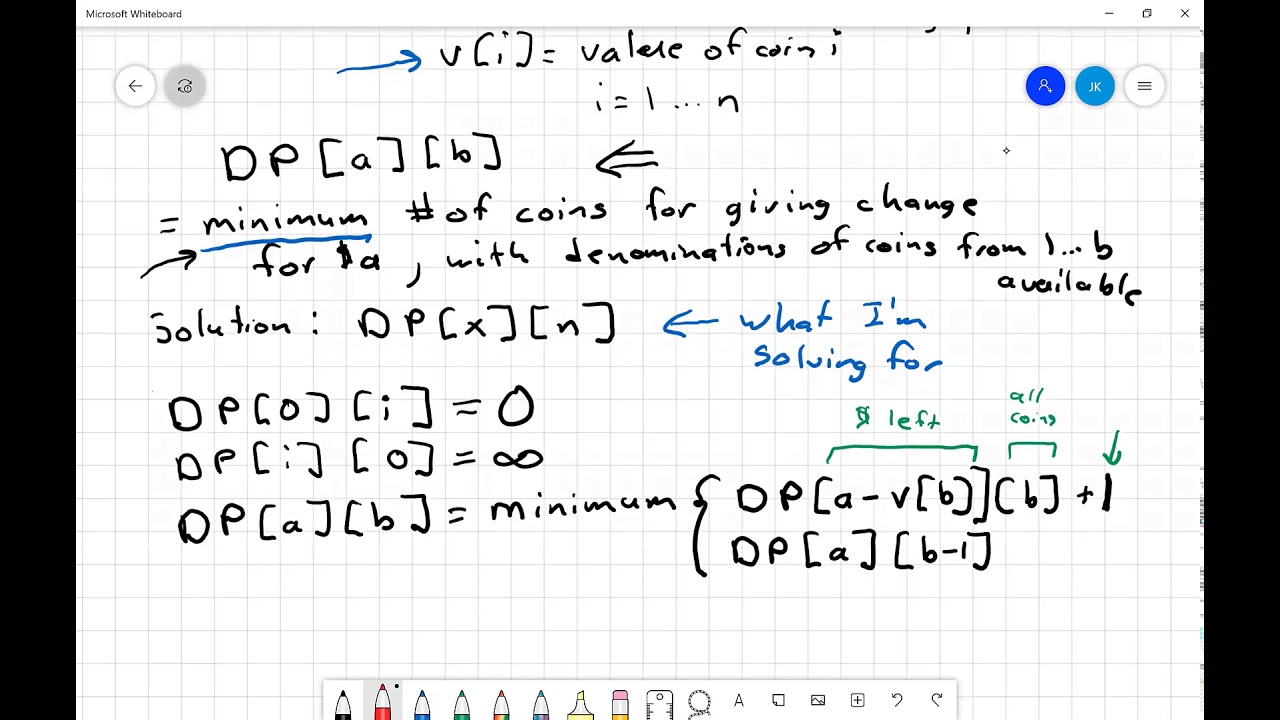 Microsoft Whiteboard
v[i] = value of coin i
i = 1 ... n
JK
DP[a][b] ⇐
= minimum # of coins for giving change
for $a, with denominations of coins from 1... b
available
Solution: DP[x][n] ← what I'm
solving for
DP[0][i] = 0
DP[i][0] = ∞
$ left
all
coins
DP[a][b] = minimum { DP[a - v[b]][b] + 1
DP[a][b-1]
A